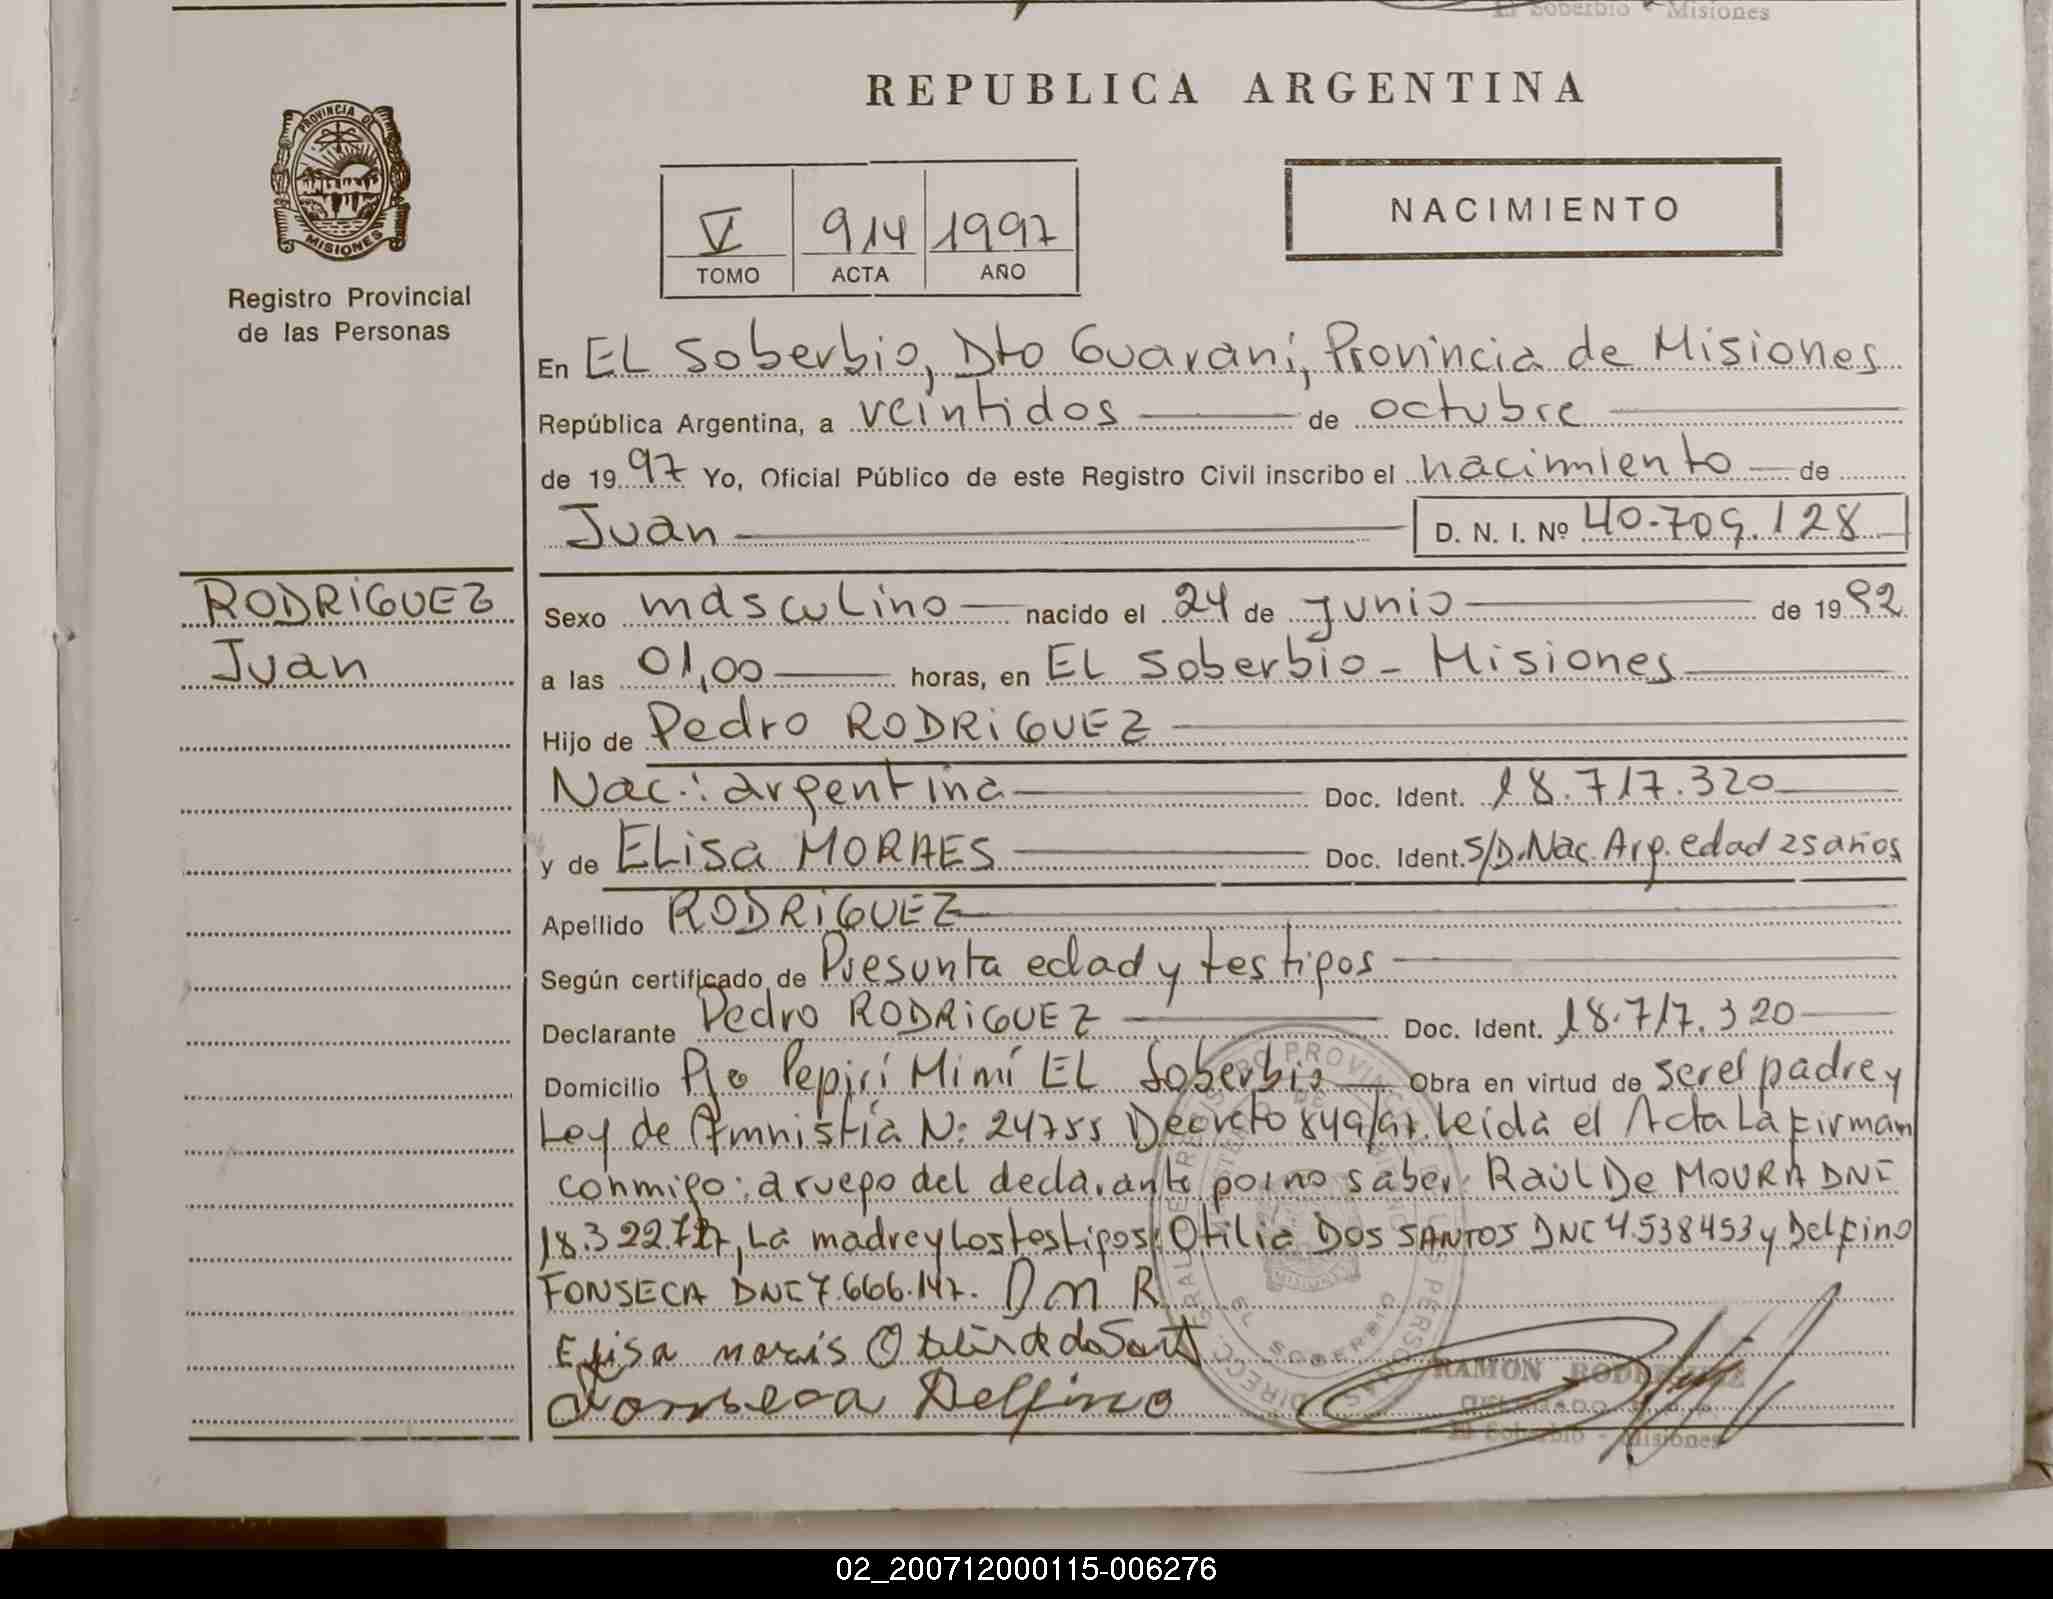 El Soberbio - Misiones
REPUBLICA ARGENTINA
PROVINCIA DE
MISIONES
Registro Provincial
de las Personas
V 914 1997
TOMO ACTA AÑO
NACIMIENTO
En EL Soberbio, Dto Guarani, Provincia de Misiones
República Argentina, a veintidos de octubre
de 1997 Yo, Oficial Público de este Registro Civil inscribo el nacimiento de
Juan D. N. I. Nº 40.709.128
RODRIGUEZ
Juan
Sexo masculino nacido el 24 de junio de 1992
a las 01,00 horas, en EL Soberbio - Misiones
Hijo de Pedro RODRIGUEZ
Nac.: argentina Doc. Ident. 18.717.320
y de ELisa MORAES Doc. Ident. S/D. Nac. Arg. edad 25 años
Apellido RODRIGUEZ
Según certificado de Presunta edad y testigos
Declarante Pedro RODRIGUEZ Doc. Ident. 18.717.320
Domicilio Pje Pepirí Miní EL Soberbio Obra en virtud de ser el padre y
Ley de Amnistía N: 24755 Decreto 849/97. Leida el Acta La firman
conmigo: a ruego del declarante por no saber RaúL De MOURA DNI
18.322.727, La madre y Los testigos: Otilia DOS SANTOS DNI 4.538453 y Delfino
FONSECA DNI 7.666.147. D M R
Elisa morais
Fonseca Delfino
RAMON RODRIGUEZ
El Soberbio - Misiones
02_200712000115-006276